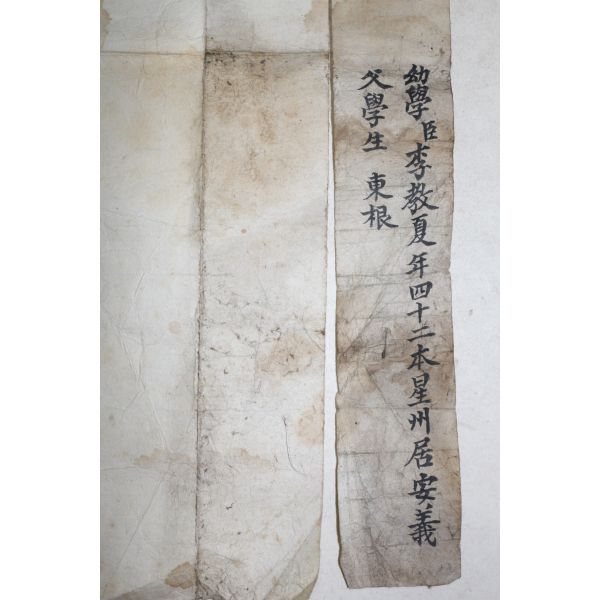 幼學臣李教夏年四十二本星州居安義
父學生東根